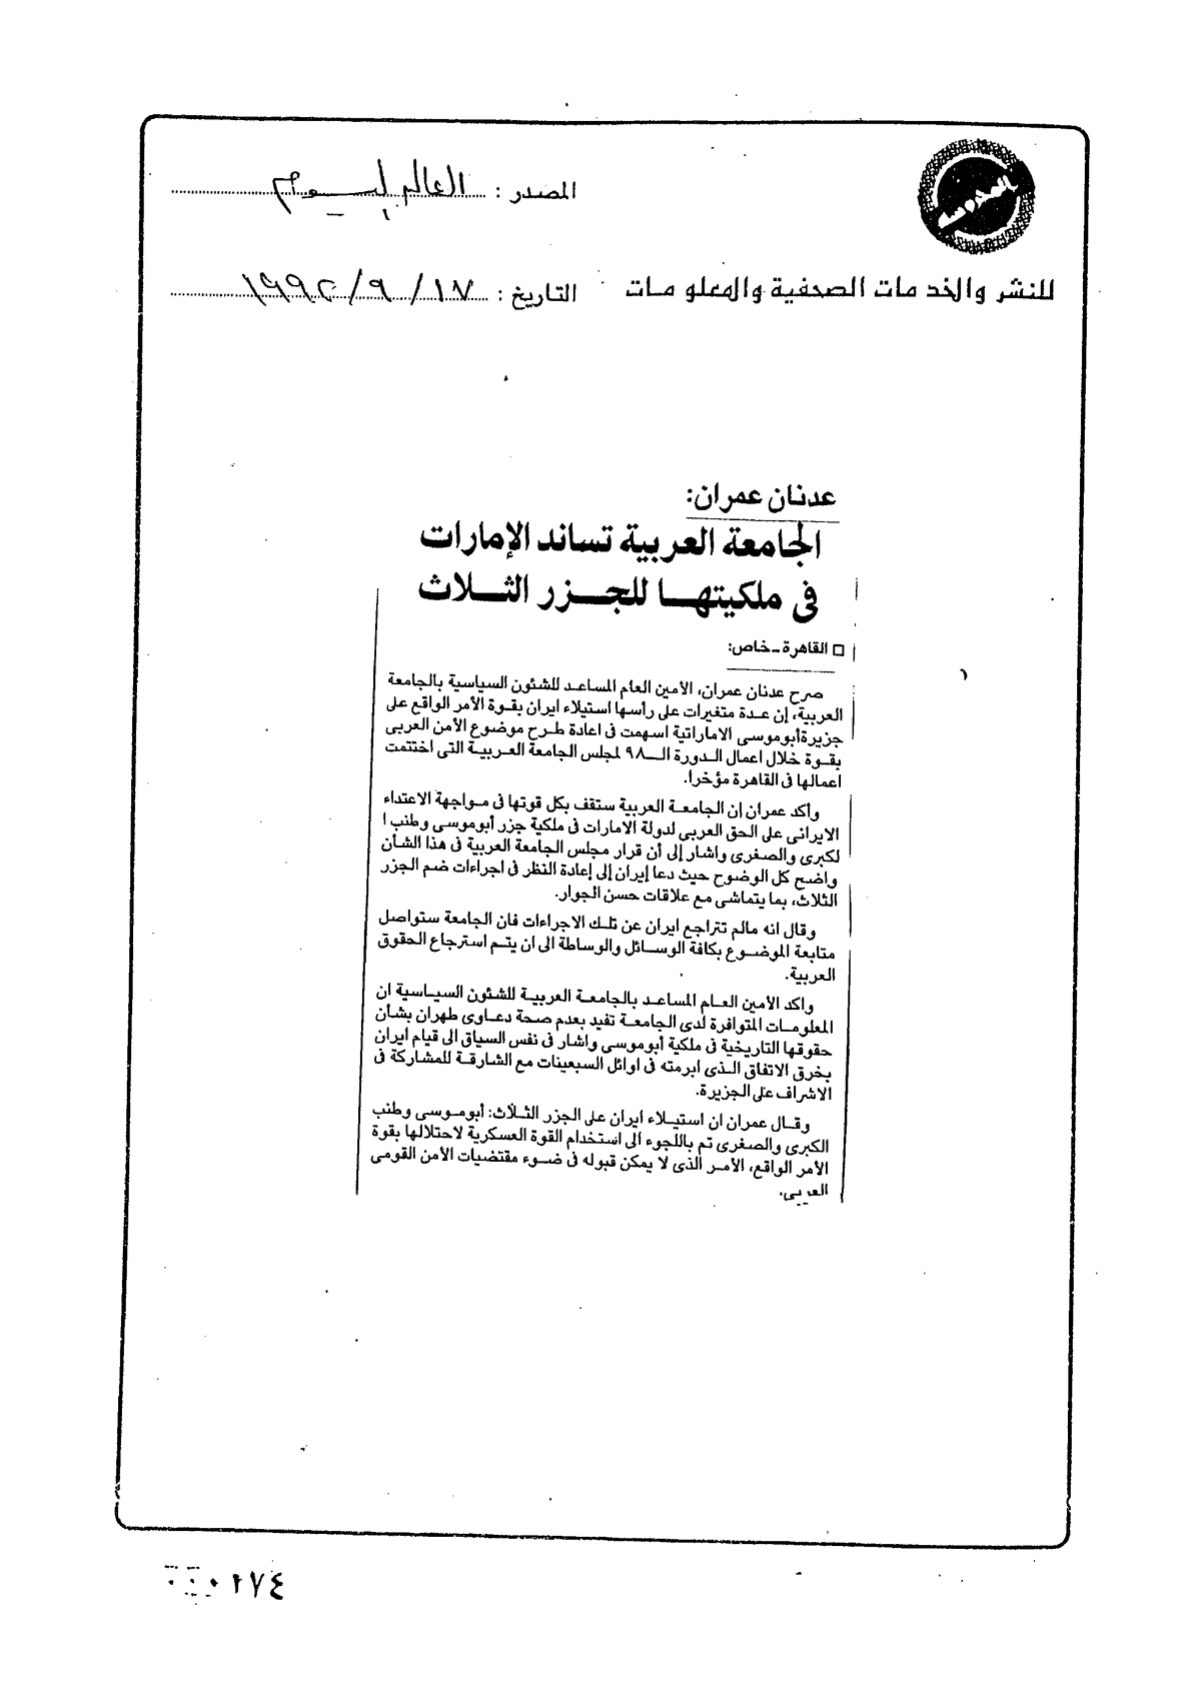 المصدر : العالم اليوم
للنشر والخدمات الصحفية والمعلومات
التاريخ : ١٩٩٢/٩/١٧
عدنان عمران:
الجامعة العربية تساند الإمارات
فى ملكيتهـا للجـزر الثـلاث
□ القاهرة ـ خاص:
صرح عدنان عمران، الأمين العام المساعد للشئون السياسية بالجامعة
العربية، إن عدة متغيرات على رأسها استيلاء ايران بقوة الأمر الواقع على
جزيرة أبوموسى الاماراتية اسهمت فى اعادة طرح موضوع الأمن العربى
بقوة خلال اعمال الدورة الـ٩٨ لمجلس الجامعة العربية التى اختتمت
اعمالها فى القاهرة مؤخرا.
وأكد عمران إن الجامعة العربية ستقف بكل قوتها فى مواجهة الاعتداء
الايرانى على الحق العربى لدولة الامارات فى ملكية جزر أبوموسى وطنب ا
لكبرى والصغرى واشار إلى أن قرار مجلس الجامعة العربية فى هذا الشأن
واضح كل الوضوح حيث دعا إيران إلى إعادة النظر فى اجراءات ضم الجزر
الثلاث، بما يتماشى مع علاقات حسن الجوار.
وقال انه مالم تتراجع ايران عن تلك الاجراءات فان الجامعة ستواصل
متابعة الموضوع بكافة الوسائل والوساطة الى ان يتم استرجاع الحقوق
العربية.
واكد الأمين العام المساعد بالجامعة العربية للشئون السياسية ان
المعلومات المتوافرة لدى الجامعة تفيد بعدم صحة دعاوى طهران بشأن
حقوقها التاريخية فى ملكية أبوموسى واشار فى نفس السياق الى قيام ايران
بخرق الاتفاق الذى ابرمته فى اوائل السبعينات مع الشارقة للمشاركة فى
الاشراف على الجزيرة.
وقال عمران ان استيلاء ايران على الجزر الثلاث: أبوموسى وطنب
الكبرى والصغرى تم باللجوء الى استخدام القوة العسكرية لاحتلالها بقوة
الأمر الواقع، الأمر الذى لا يمكن قبوله فى ضوء مقتضيات الأمن القومى
العربى.